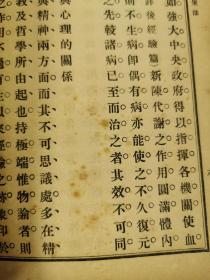 如強大中央政府得以指揮各機關使血
詳後經驗篇)新陳代謝之作用圓滿體內
前不生病卽偶有病亦能使之不久復元
之先較諸病已至而治之者其效不可同
與心理的關係
與精神兩方面而其不可思議處多在精
教及哲學所由起也持極端惟物論者則